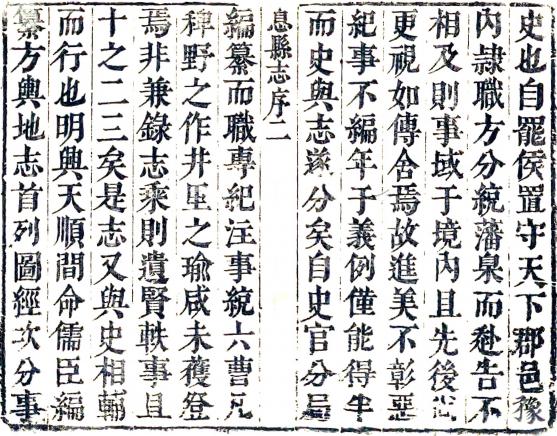 史也自罷侯置守天下郡邑豫
內隷職方分統藩臬而赴告不
相及則事域于境內且先後尠
更視如傳舍焉故進美不彰惡
紀事不編年于義例僅能得半
而史與志遂分矣自史官分局
息縣志序二
編纂而職專紀注事統六曹凡
稗野之作井里之瑜咸未獲登
焉非兼錄志乘則遺賢軼事且
十之二三矣是志又與史相輔
而行也明興天順間命儒臣編
纂方輿地志首列圖經次分事